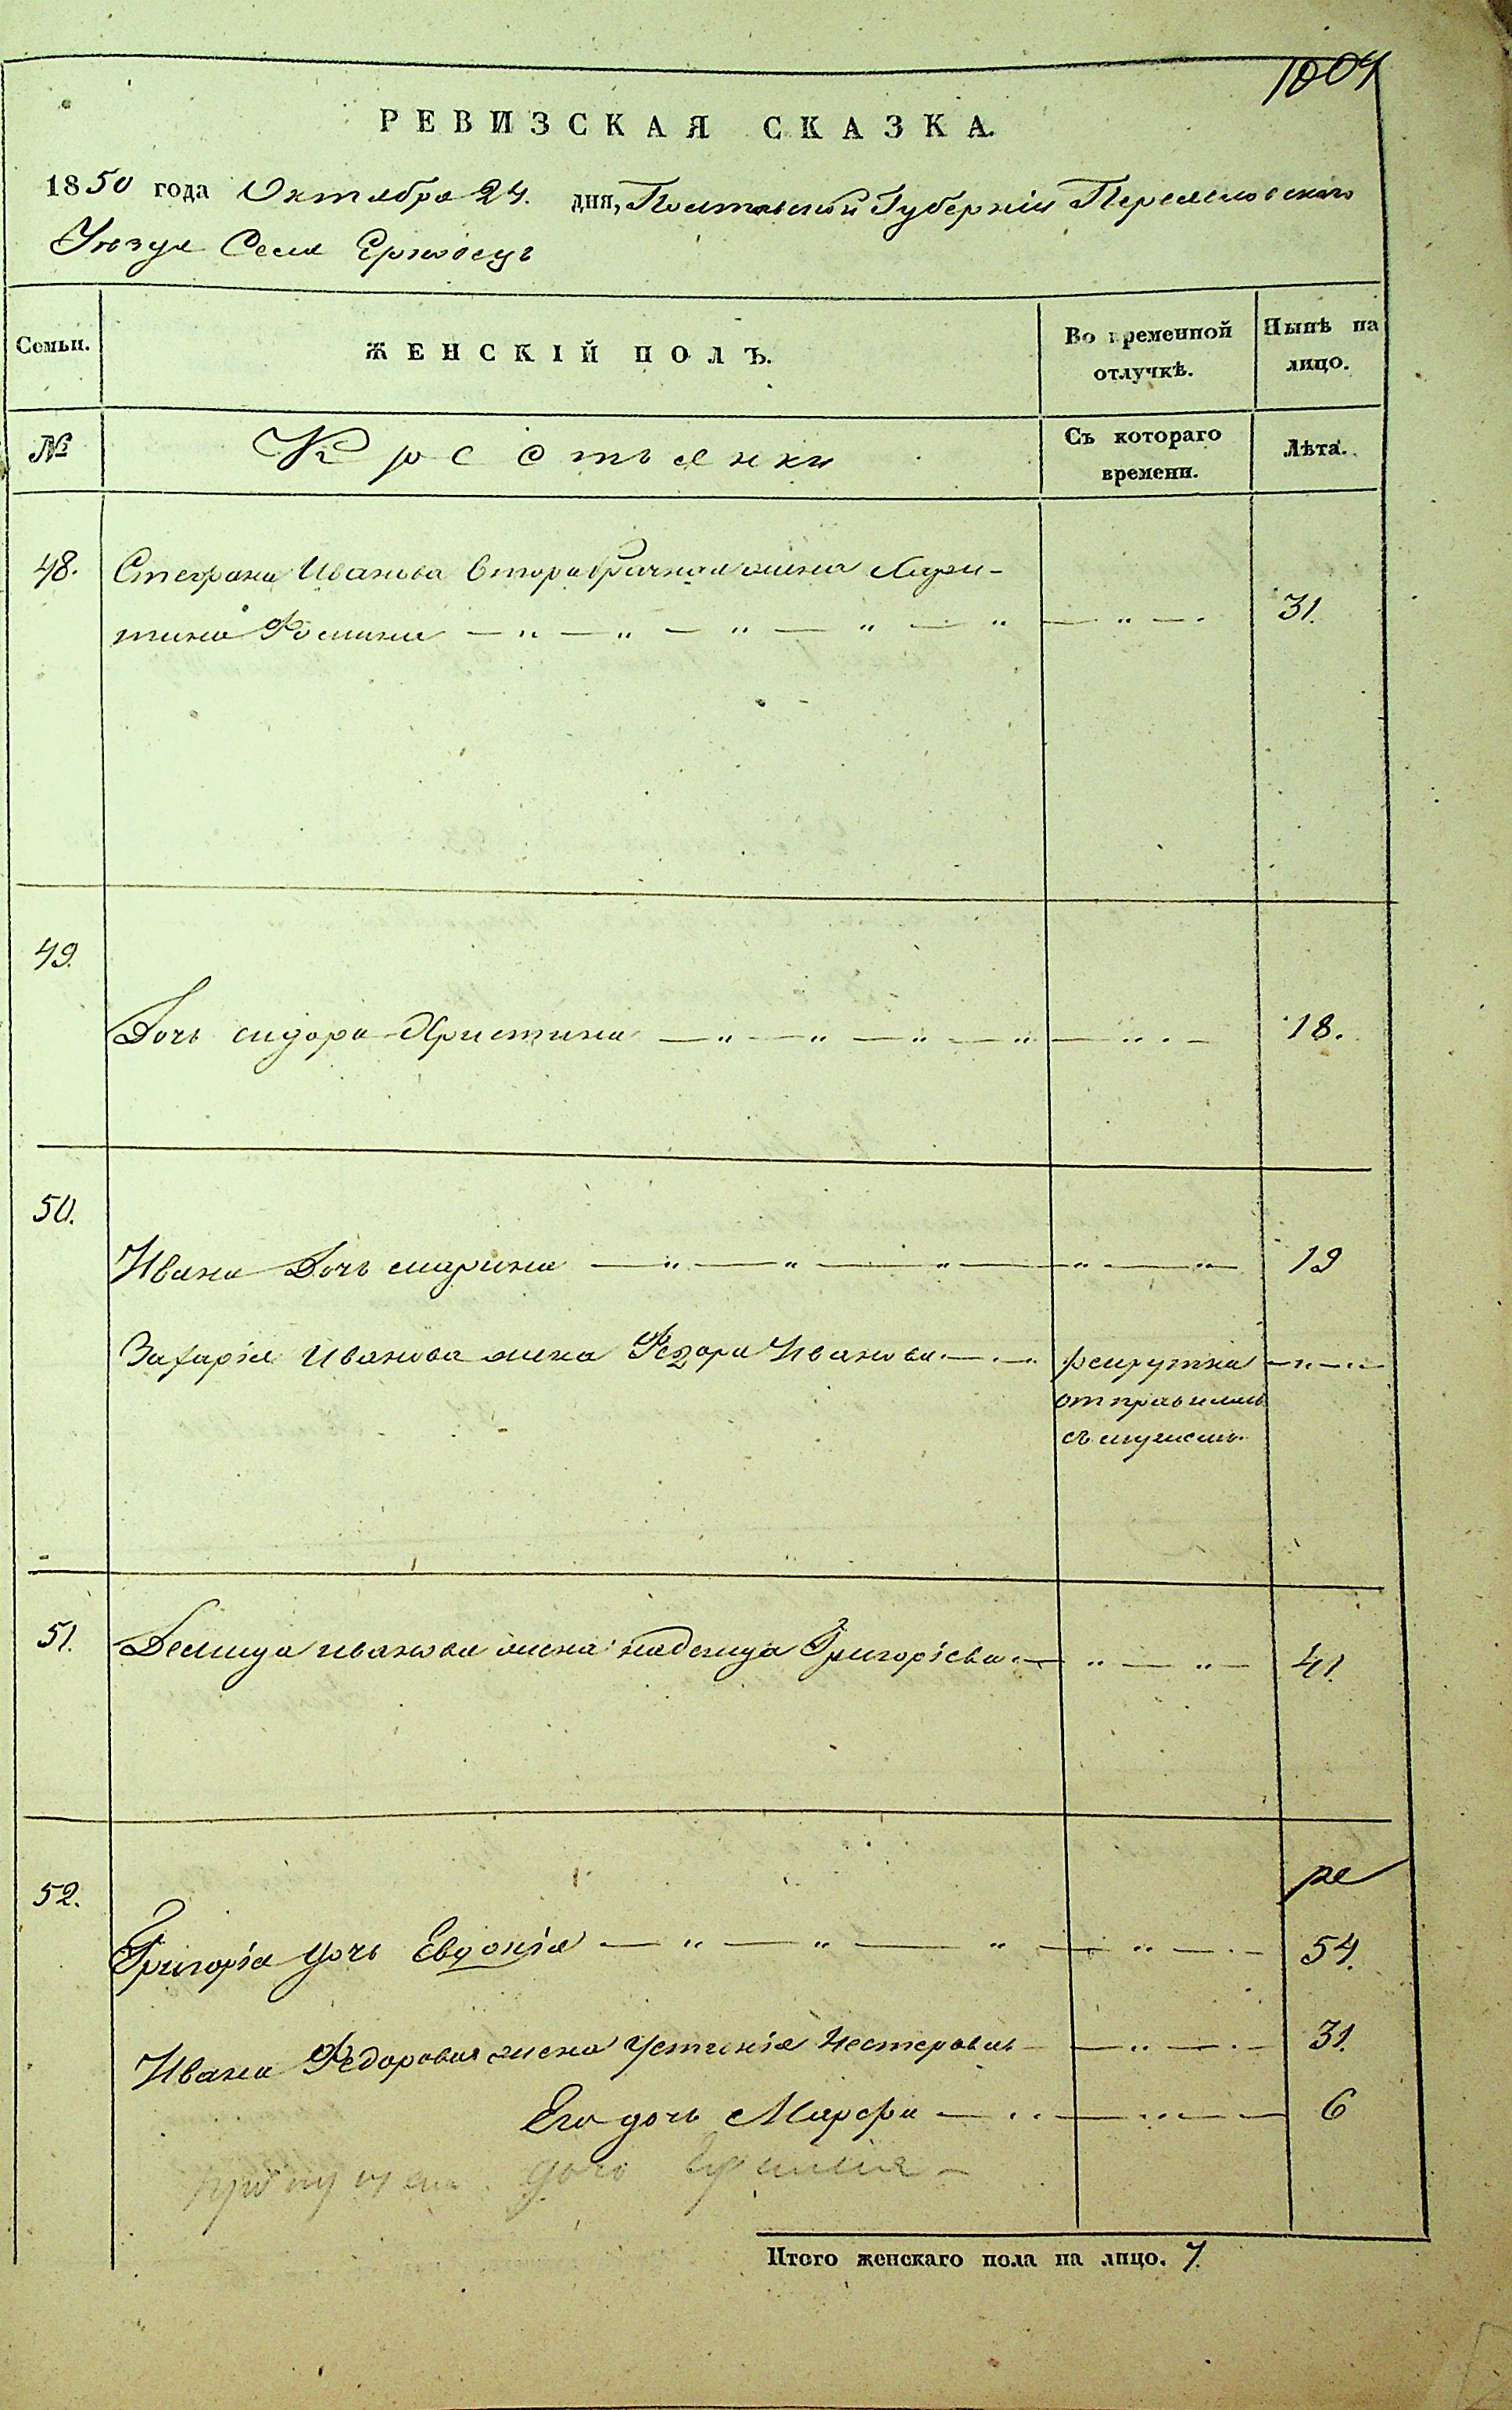 1004
РЕВИЗСКАЯ СКАЗКА.
1850 года Октября 24. дня, Полтавской Губерніи Переяславского
Уезда Села Ерковецъ
Семьи.
ЖЕНСКІЙ ПОЛЪ.
Во временной отлучкѣ.
Нынѣ на лицо.
№
Крестьянки
Съ котораго времени.
Лѣта.
48. Стефана Иванова Второбрачная жена Хари-
тина Фомина 31.
49.
Дочь сидора Христина 18.
50.
Ивана Дочь марина 19
Захарія Иванова жена Федора Иванова рекрутка
отправилась
съ мужемъ.
51. Демида иванова жена надежда Григорієва 41.
52.
Григорія дочь Евдокія 54.
Ивана Федорова жена Устинія Нестерова 31.
Его дочь Марфа 6
пропущена дочь
Итого женскаго пола на лицо. 7.